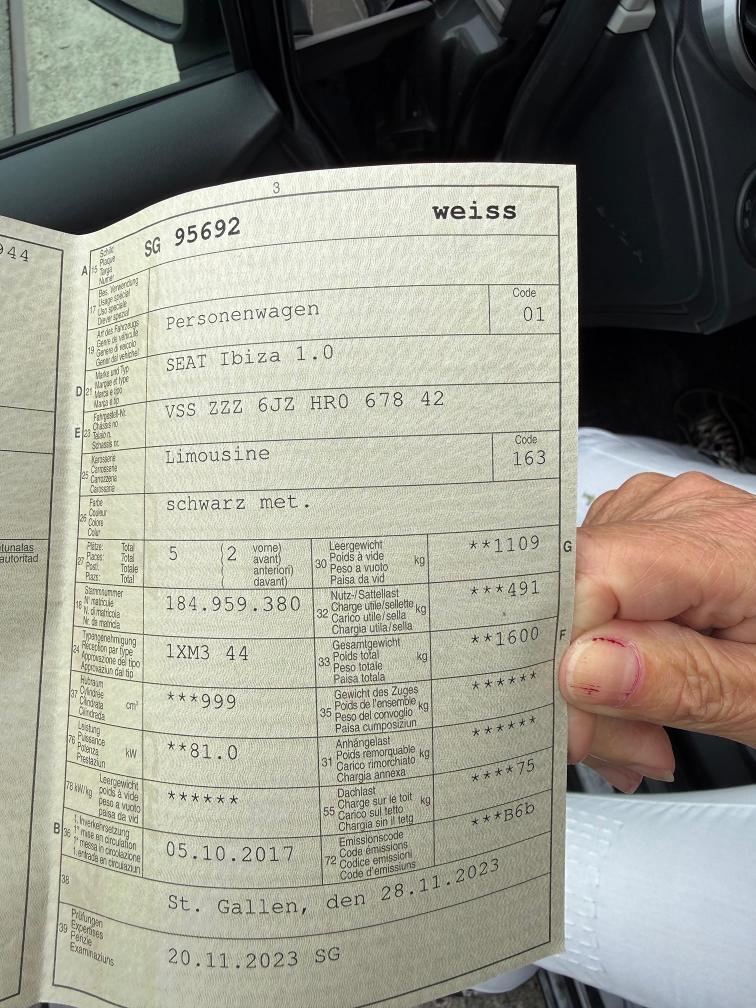 3
944
tunalas
autoritad
A 15 Schild
Plaque
Targa
Numer
SG 95692 weiss
17 Bes. Verwendung
Usage spécial
Uso speciale
Diever spezial
19 Art des Fahrzeugs
Genre de véhicule
Genere di veicolo
Gener dal vehichel
Personenwagen
Code
01
D 21 Marke und Typ
Marque et type
Marca e tipo
Marca e tip
SEAT Ibiza 1.0
E 23 Fahrgestell-Nr.
Châssis no
Telaio n.
Schassis nr.
VSS ZZZ 6JZ HR0 678 42
25 Karosserie
Carrosserie
Carrozzeria
Carossaria
Limousine
Code
163
26 Farbe
Couleur
Colore
Colur
schwarz met.
27 Plätze: Total
Places: Total
Posti: Totale
Plazs: Total
5 (2 vorne)
avant)
anteriori)
davant)
30 Leergewicht
Poids à vide
Peso a vuoto
Paisa da vid
kg
**1109
G
18 Stammnummer
N° matricule
N. di matricola
Nr. da matricla
184.959.380
32 Nutz-/Sattellast
Charge utile/sellette
Carico utile/sella
Chargia utila/sella
kg
***491
24 Typengenehmigung
Réception par type
Approvazione del tipo
Approvaziun dal tip
1XM3 44
33 Gesamtgewicht
Poids total
Peso totale
Paisa totala
kg
**1600
F
37 Hubraum
Cylindrée
Cilindrata
Cilindrada
cm³
***999
35 Gewicht des Zuges
Poids de l'ensemble
Peso del convoglio
Paisa cumposiziun
kg
******
76 Leistung
Puissance
Potenza
Prestaziun
kW
**81.0
31 Anhängelast
Poids remorquable
Carico rimorchiato
Chargia annexa
kg
******
78 kW/kg Leergewicht
poids à vide
peso a vuoto
paisa da vid
******
55 Dachlast
Charge sur le toit
Carico sul tetto
Chargia sin il tetg
kg
****75
B 36 1. Inverkehrsetzung
1re mise en circulation
1a messa in circolazione
1. entrada en circulaziun
05.10.2017
72 Emissionscode
Code émissions
Codice emissioni
Code d'emissiuns
***B6b
38
St. Gallen, den 28.11.2023
39 Prüfungen
Expertises
Perizie
Examinaziuns
20.11.2023 SG